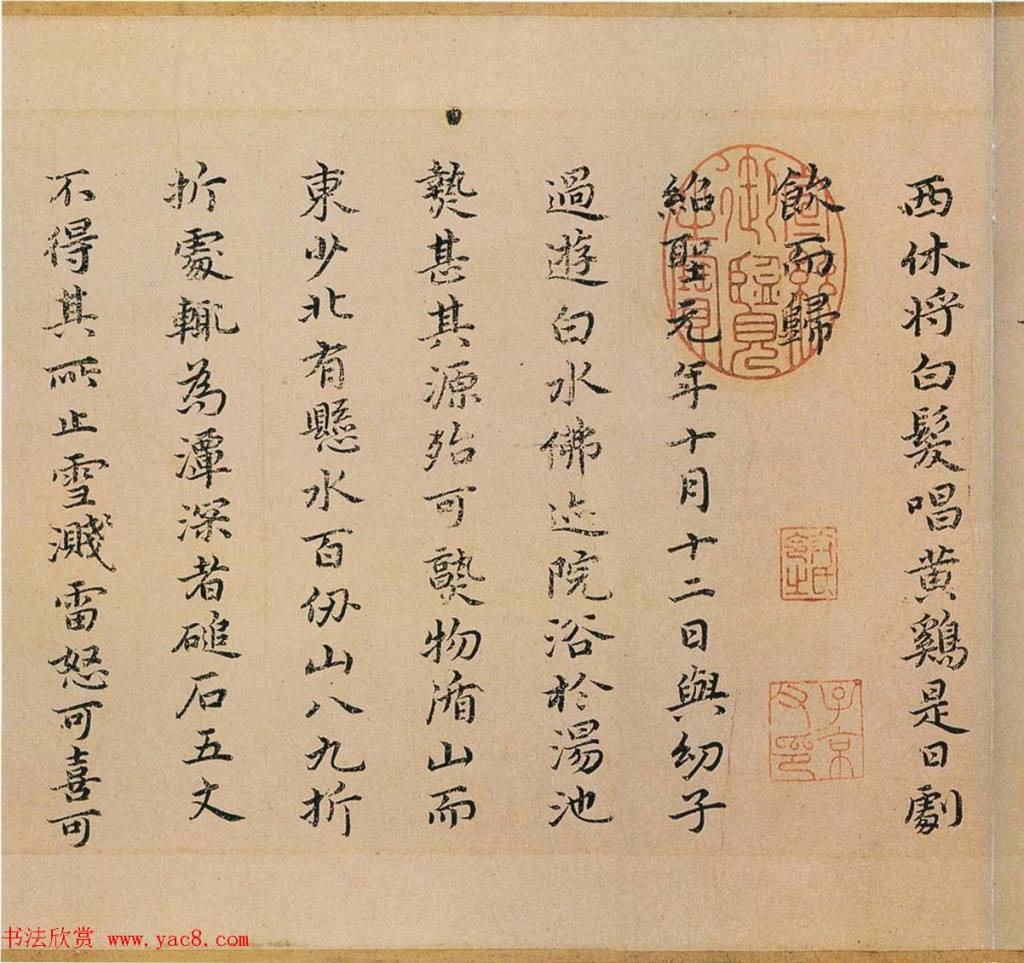 西休将白髮唱黄鷄是日劇
飲而歸
紹聖元年十月十二日與幼子
過遊白水佛迹院浴於湯池
熱甚其源殆可熟物循山而
東少北有懸水百仞山八九折
折處輒為潭深者磓石五丈
不得其所止雪濺雷怒可喜可
子京父印
书法欣赏 www.yac8.com